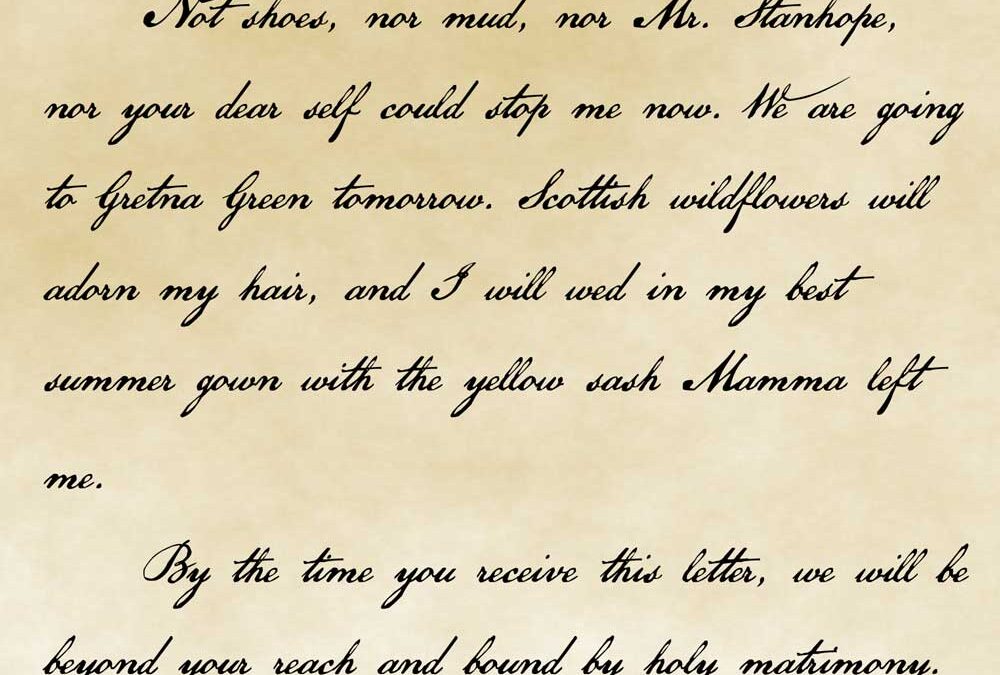 Not shoes, nor mud, nor Mr. Stanhope,
nor your dear self could stop me now. We are going
to Gretna Green tomorrow. Scottish wildflowers will
adorn my hair, and I will wed in my best
summer gown with the yellow sash Mamma left
me.
By the time you receive this letter, we will be
beyond your reach and bound by holy matrimony.